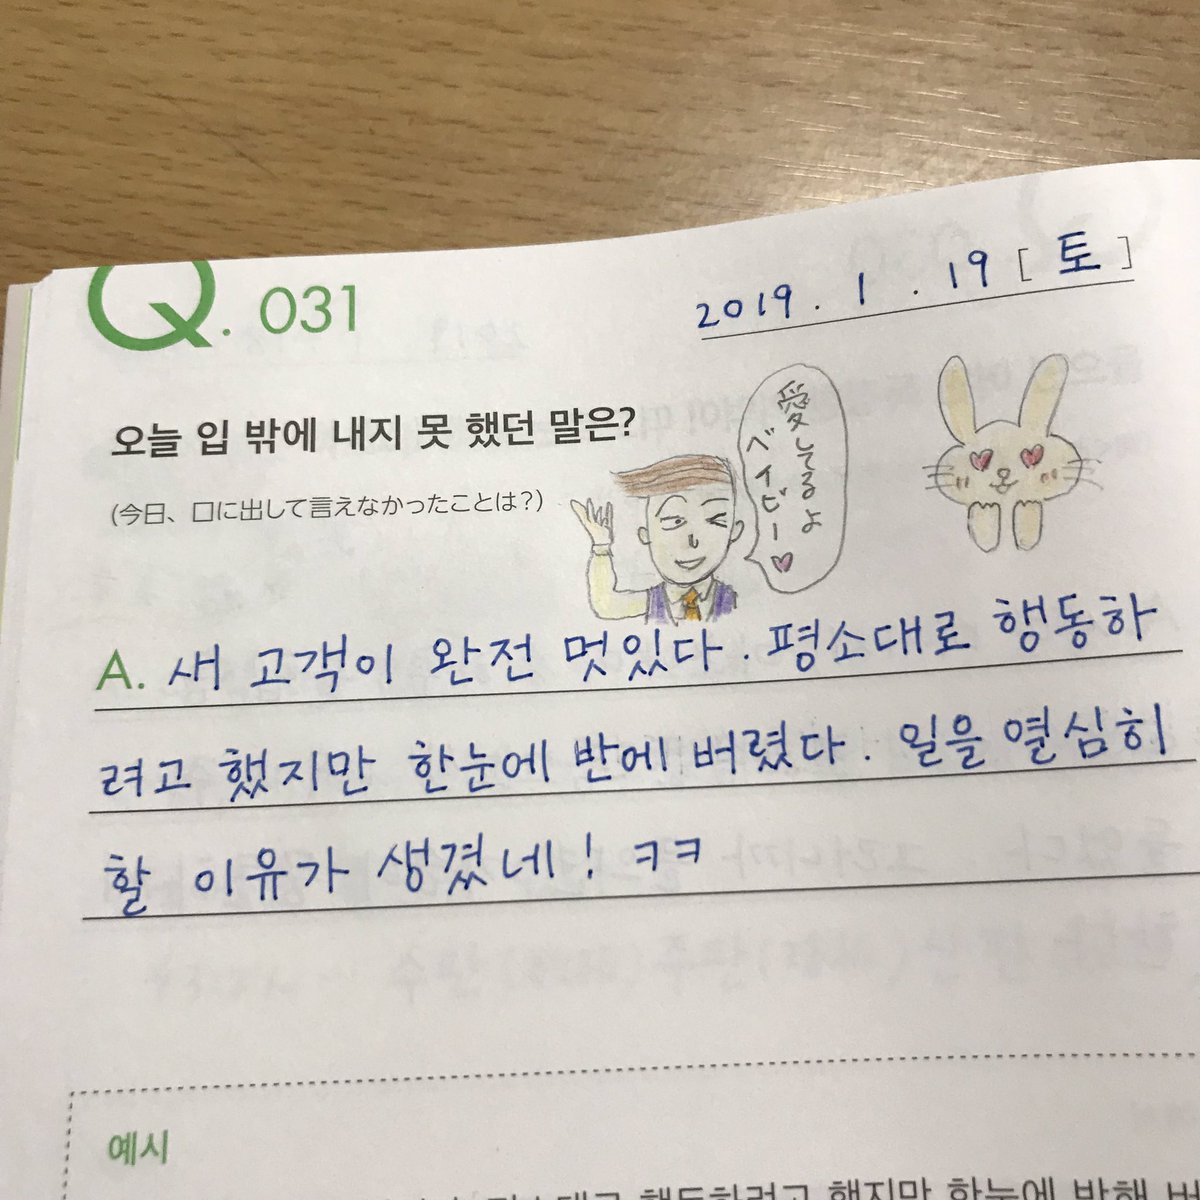 Q. 031
2019. 1. 19 [토]
오늘 입 밖에 내지 못 했던 말은?
(今日、口に出して言えなかったことは?)
愛してるよ
ベイビー♡
A. 새 고객이 완전 멋있다. 평소대로 행동하
려고 했지만 한눈에 반에 버렸다. 일을 열심히
할 이유가 생겼네! ㅋㅋ
예시
행동하려고 했지만 한눈에 반해